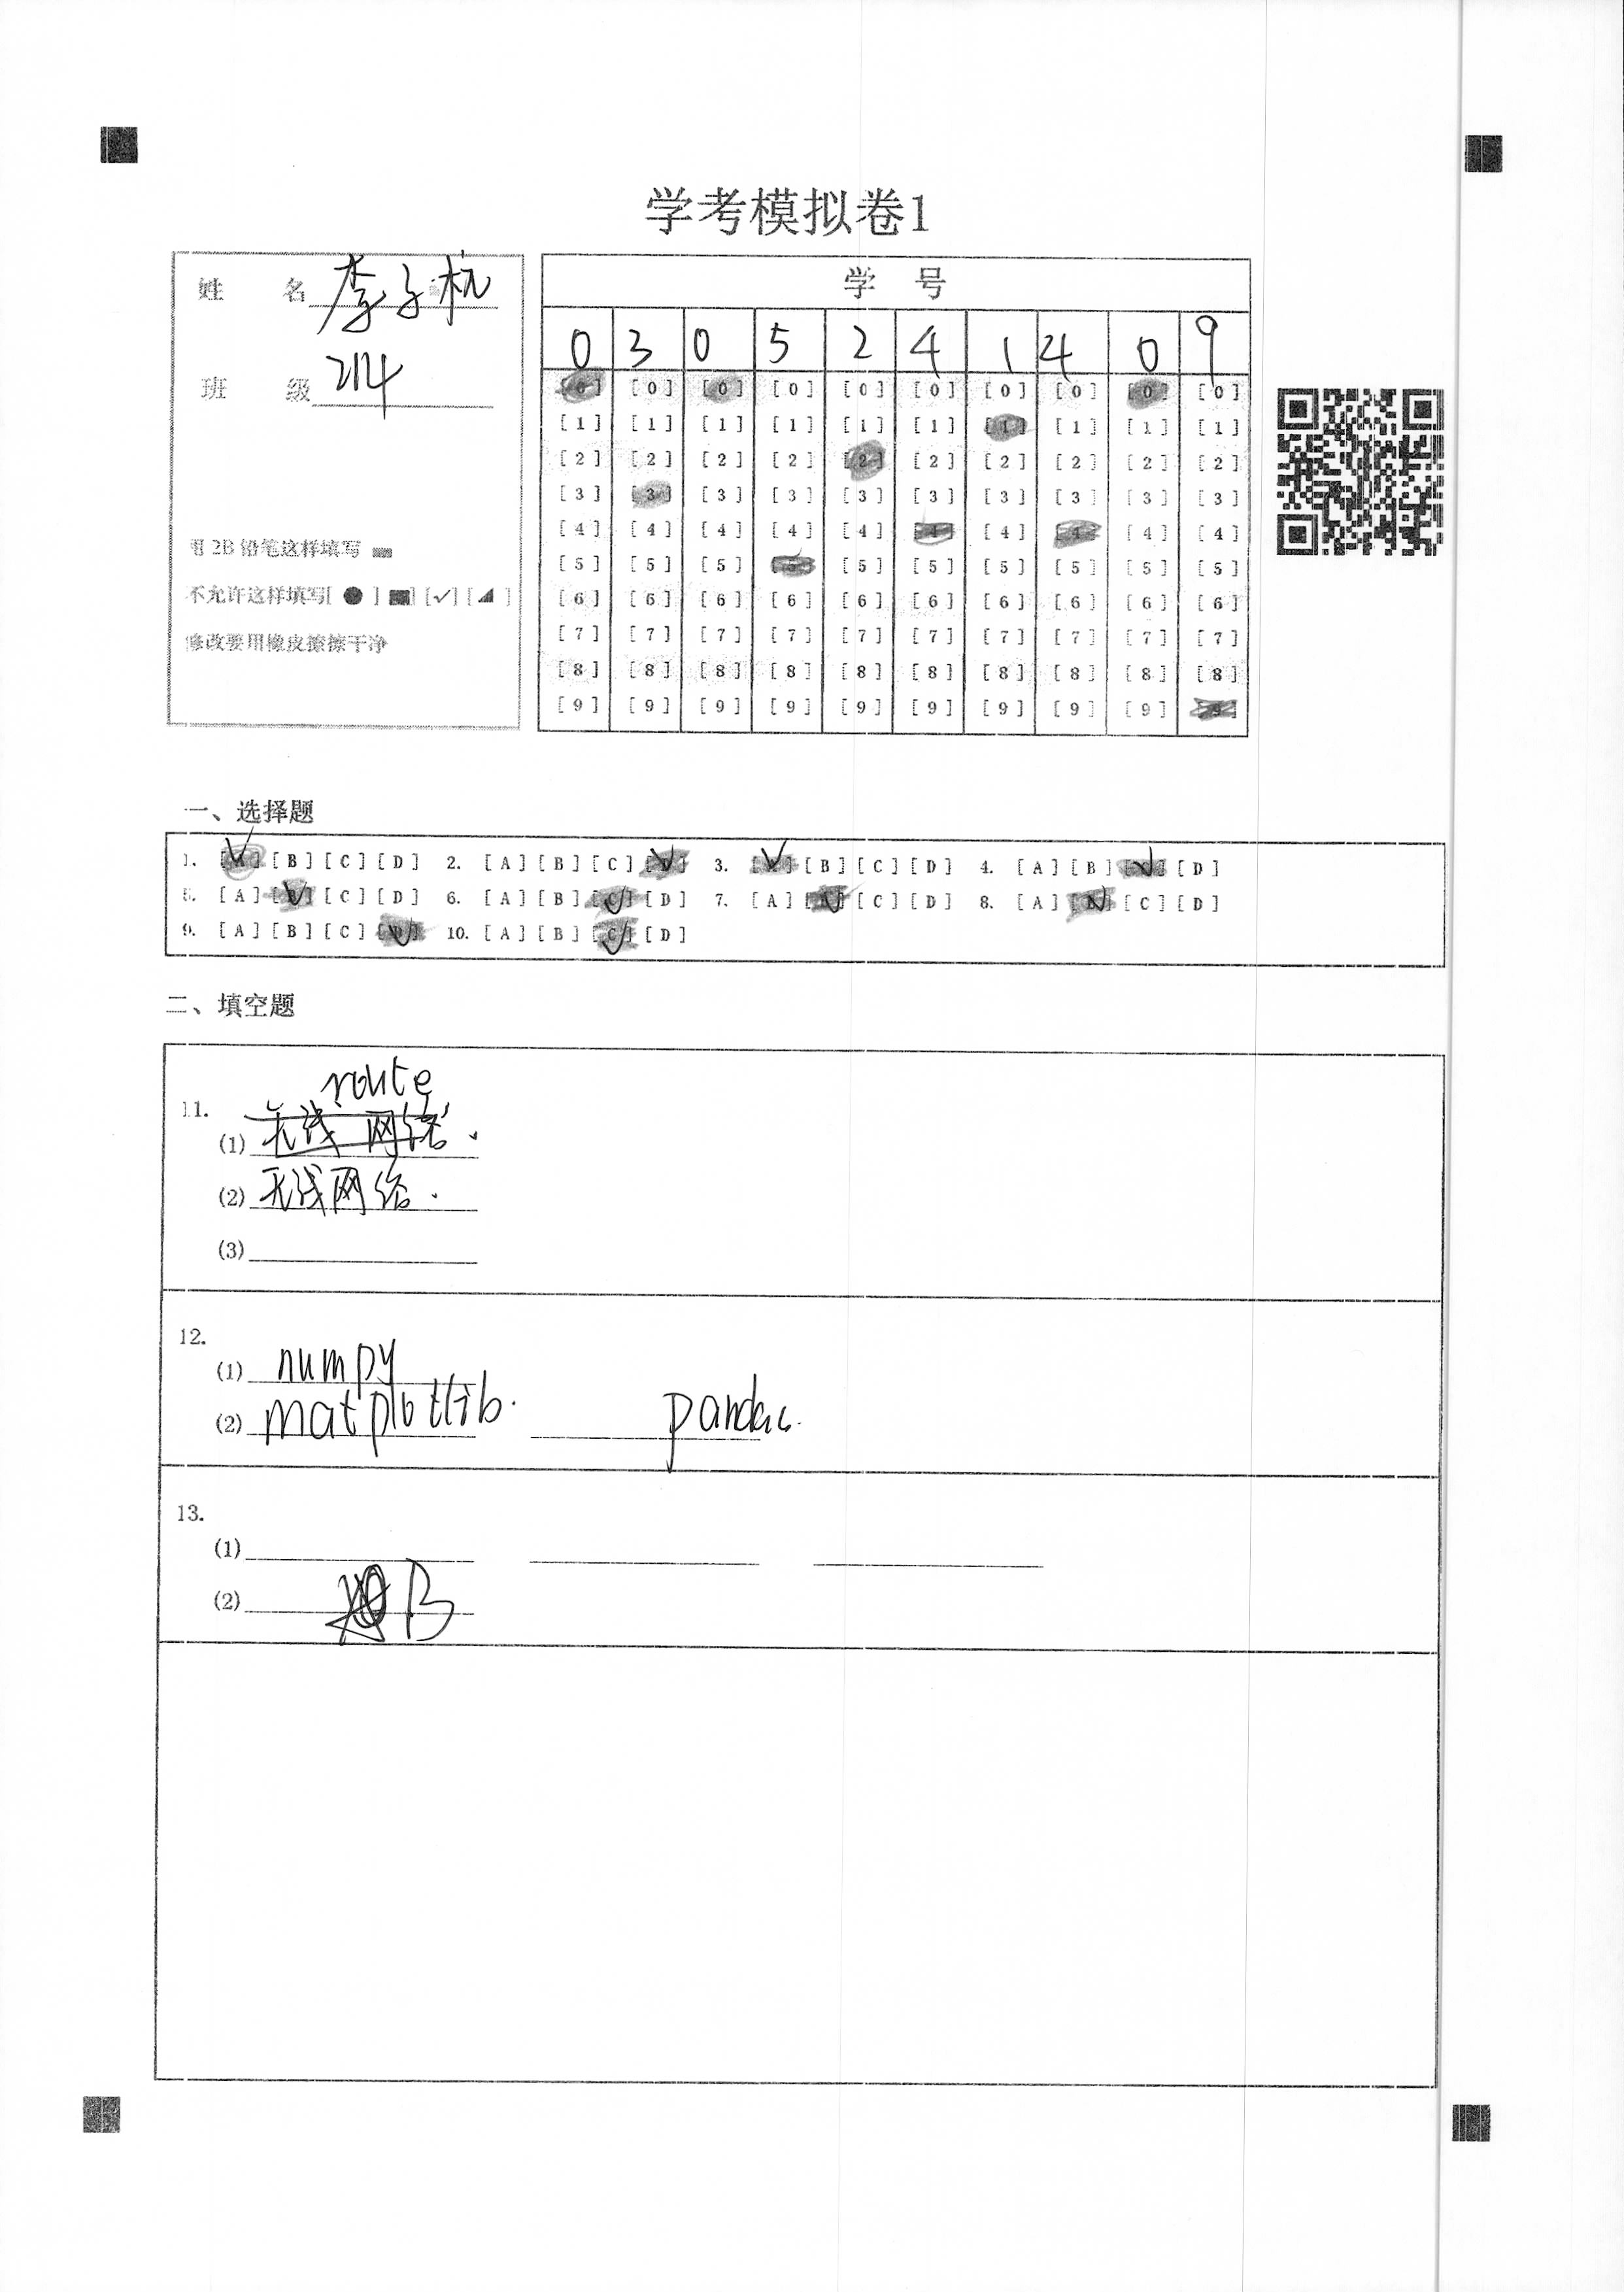 学考模拟卷1
姓 名 李子杭
班 级 214
用 2B 铅笔这样填写
不允许这样填写[ ● ] [■] [✓] [◢ ]
修改要用橡皮擦擦干净
学 号
0 3 0 5 2 4 1 4 0 9
[0] [0] [0] [0] [0] [0] [0] [0] [0] [0]
[1] [1] [1] [1] [1] [1] [1] [1] [1] [1]
[2] [2] [2] [2] [2] [2] [2] [2] [2] [2]
[3] [3] [3] [3] [3] [3] [3] [3] [3] [3]
[4] [4] [4] [4] [4] [4] [4] [4] [4] [4]
[5] [5] [5] [5] [5] [5] [5] [5] [5] [5]
[6] [6] [6] [6] [6] [6] [6] [6] [6] [6]
[7] [7] [7] [7] [7] [7] [7] [7] [7] [7]
[8] [8] [8] [8] [8] [8] [8] [8] [8] [8]
[9] [9] [9] [9] [9] [9] [9] [9] [9] [9]
一、选择题
1. [A] [B] [C] [D] 2. [A] [B] [C] [D] 3. [A] [B] [C] [D] 4. [A] [B] [C] [D]
5. [A] [B] [C] [D] 6. [A] [B] [C] [D] 7. [A] [B] [C] [D] 8. [A] [B] [C] [D]
9. [A] [B] [C] [D] 10. [A] [B] [C] [D]
二、填空题
11.
route
(1) 无线网络.
(2) 无线网络.
(3)
12.
(1) numpy
(2) matplotlib. pandas.
13.
(1)
(2) B